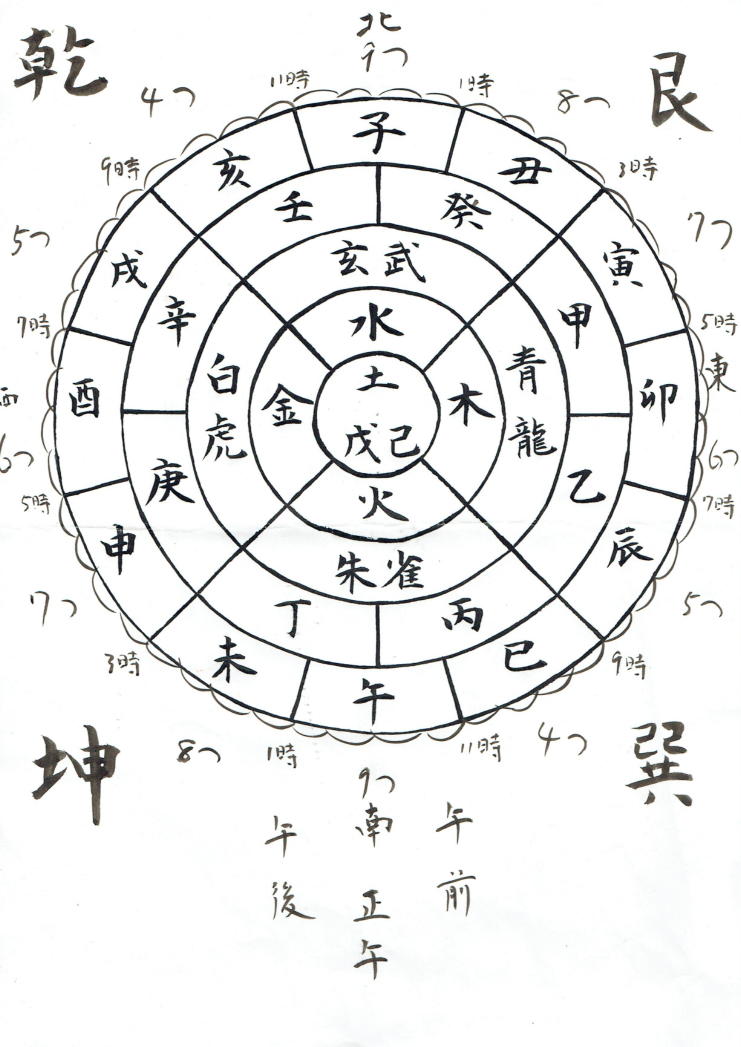 北
9つ
乾
艮
4つ
11時
1時
8つ
子
亥
丑
9時
3時
壬
癸
5つ
7つ
戌
寅
玄武
辛
甲
水
7時
5時
東
西
酉
白虎
金
土
戊己
木
青龍
卯
6つ
6つ
庚
乙
5時
7時
火
申
辰
朱雀
7つ
5つ
丁
丙
3時
9時
未
巳
午
坤
巽
8つ
1時
11時
4つ
9つ
南
正午
午前
午後